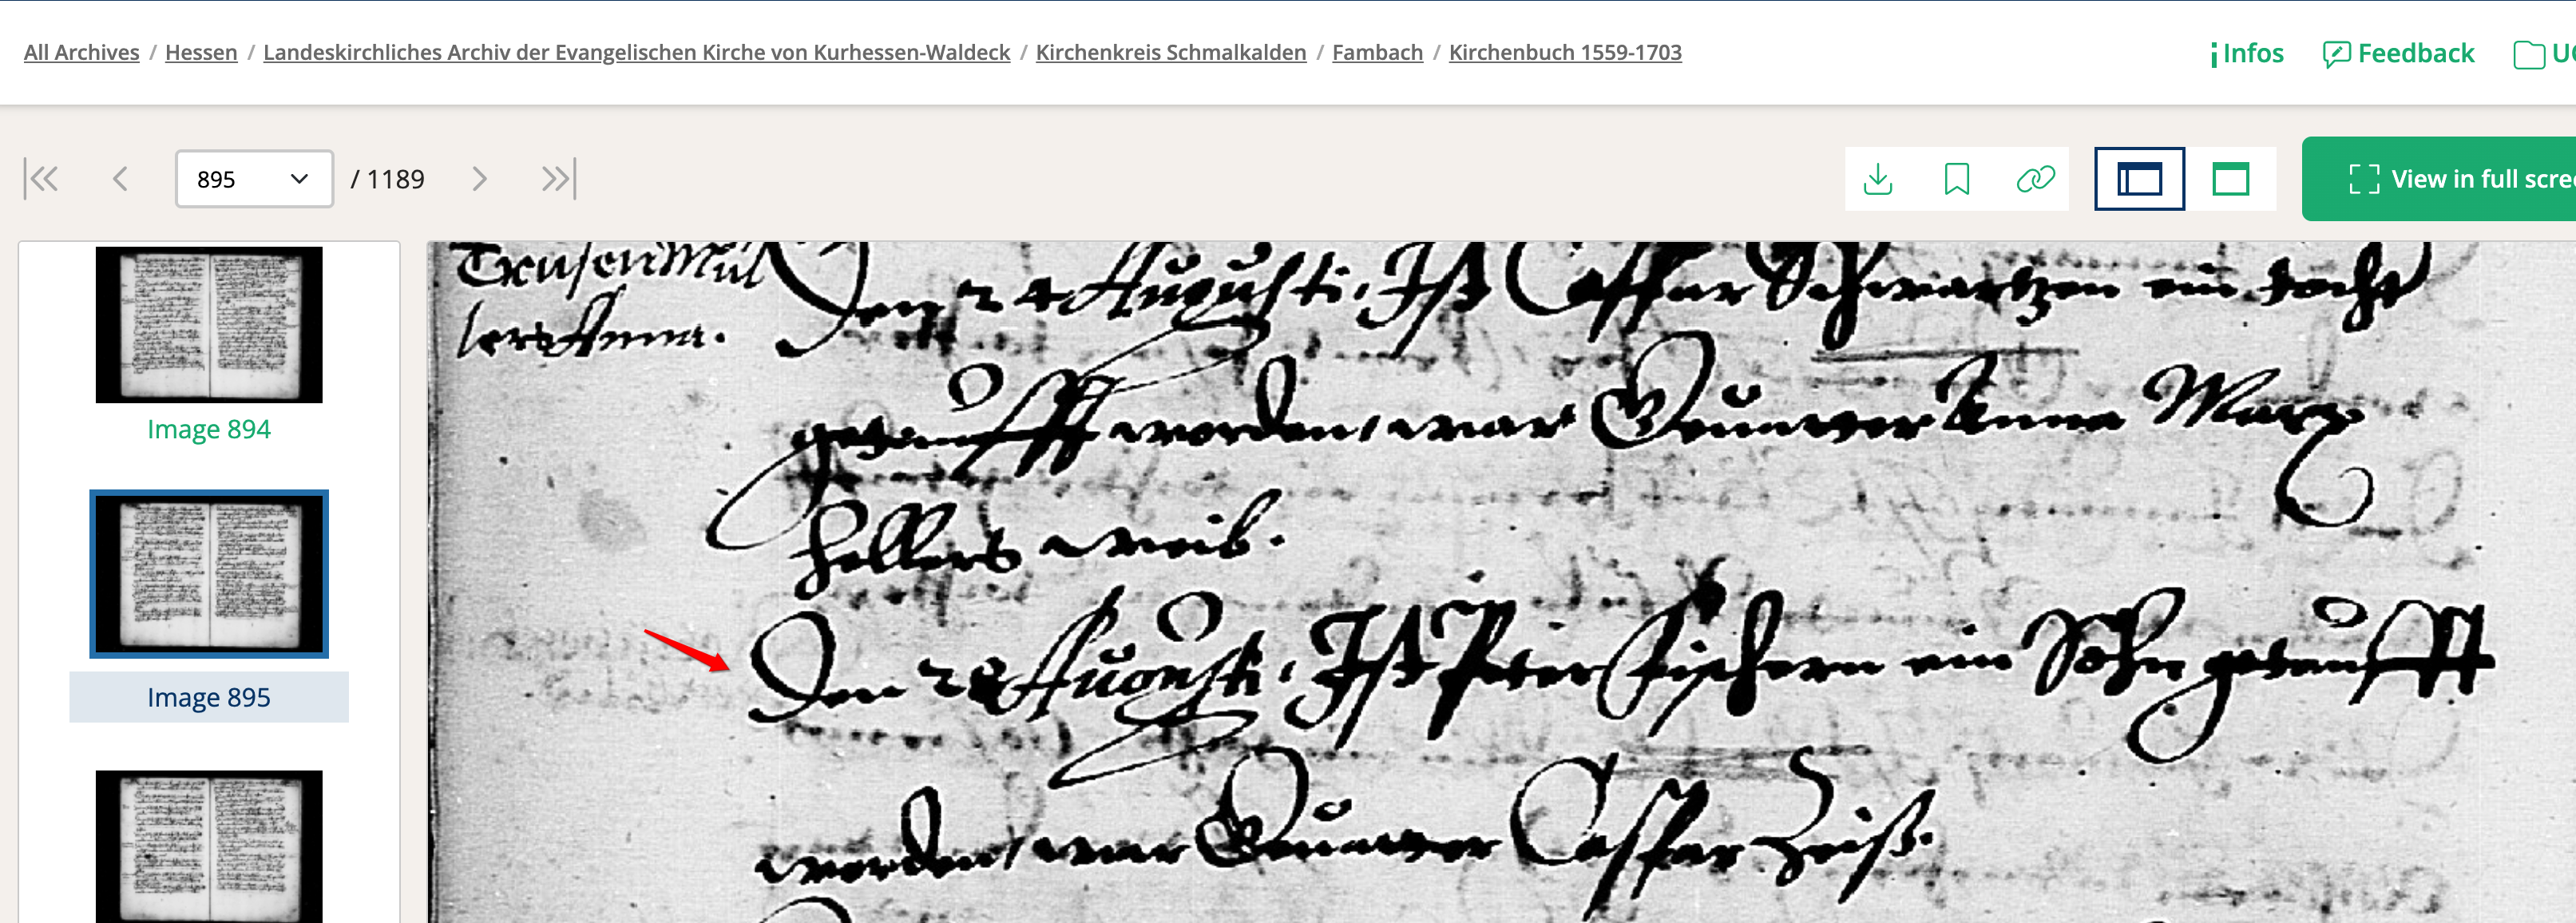 All Archives / Hessen / Landeskirchliches Archiv der Evangelischen Kirche von Kurhessen-Waldeck / Kirchenkreis Schmalkalden / Fambach / Kirchenbuch 1559-1703
Infos Feedback
895 / 1189
View in full scre
Image 894
Image 895
TrusenMül
lers Anna.
Den 24 Augusti, Ist Caspar Schwartzen ein tocht
getaufft worden, war Gevatter Anna Marx
Hellers weib.
Den 28 Augusti, Ist Peter Fischern ein Sohn getaufft
worden, war Gevatter Caspar Zeiß.